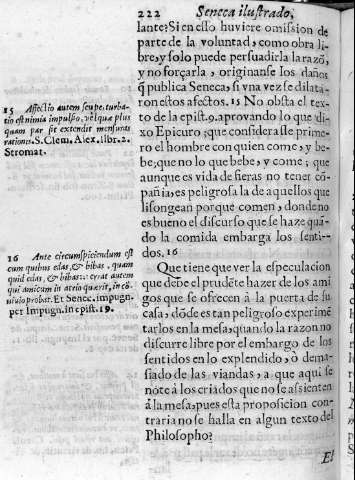 222 Seneca ilustrado,
lante? Si en esto huviere omission de
parte de la voluntad, como obra li-
bre, y solo puede persuadirla la razõ,
y no forçarla, originanse los daños
q̃ publica Seneca, si vna vez se dilata-
ron estos afectos. 15 No obsta el tex-
to de la epist. 9. aprovando lo que di-
xo Epicuro; que considerasse prime-
ro el hombre con quien come, y be-
be; que no lo que bebe, y come; que
aunque es vida de fieras no tener cõ-
pañia, es peligrosa la de aquellos que
lisongean porque comen, donde no
es bueno el discurso que se haze quã-
do la comida embarga los senti-
dos. 16
Que tiene que ver la especulacion
que debe el prudẽte hazer de los ami
gos que se ofrecen à la puerta de su
casa, dõde es tan peligroso experimẽ
tarlos en la mesa, quando la razon no
discurre libre por el embargo de los
sentidos en lo explendido, ò dema-
siado de las viandas, a que aqui se
note à los criados que no se assienten
à la mesa, pues esta proposicion con-
traria no se halla en algun texto del
Philosopho?
El
15 Affectio autem sæpe, turba-
tio est nimia impulsio, vel quæ plus
quam par sit extendit mensuras
rationis. S. Clem. Alex. libr. 2.
Stromat.
16 Ante circumspiciendum est
cum quibus edas, & bibas, quam
quid edas, & bibas: errat autem
qui amicum in atrio quærit, in cõ-
vivio probat. Et Senec. impugn.
per Impugn. in epist. 19.